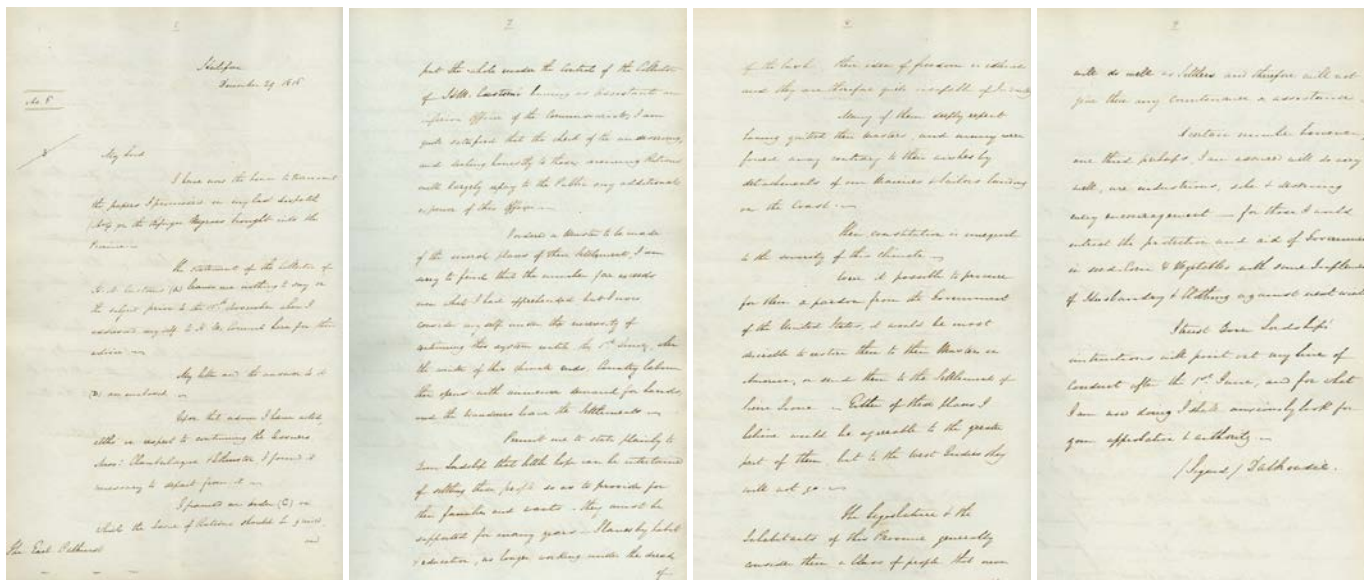 Halifax
December 29 1816
No. 8
My Lord
I have now the honor to transmit
the papers I promised in my last dispatch
on the Refugee Negroes brought into the
Province.
The statement of the Collector of
H.M. Customs (A) leaves me nothing to say on
the subject prior to the November when I
addressed myself to H. M. Council here for their
advice
My letter and the answer to it
(B) are enclosed
Upon that advice I have acted,
in respect to continuing the
I found it
necessary to depart from it
I framed an order (C) on
which the Issue of Rations should be guided,
and
The Earl Bathurst
7
put the whole under the Control of the Collector
of H.M. Customs having as Assistants an
inferior Officer of the Commissariat, I am
quite satisfied that the check of the undeserving,
and dealing honestly to those receiving Rations
will largely repay to the Public any additional
expence of this Office
I ordered a Muster to be made
of the several places of their Settlement, I am
sorry to find that the number far exceeds
even what I had apprehended but I now
consider myself under the necessity of
continuing this system until the 1st June, when
the winter of this climate ends, Country labour
then opens with immense demand for hands,
and the Wanderers leave the Settlements
Permit me to state plainly to
Your Lordship that little hope can be entertained
of settling these people so as to provide for
their families and wants - they must be
supported for many years - Slaves by habit
& education, no longer working under the dread
of
8
of the lash their idea of freedom is idleness
and they are therefore quite incapable of Industry
Many of them deeply repent
having quitted their Masters, and many were
forced away contrary to their wishes by
detachments of our Marines & Sailors landing
on the Coast.
Their constitution is unequal
to the severity of this Climate
Were it possible to procure
for them a pardon from the Government
of the United States, it would be most
desirable to restore them to their Masters in
America, or send them to the Settlement of
Sierra Leone - Either of these plans I
believe would be agreeable to the greater
part of them, but to the West Indies they
will not go
The Legislature & the
Inhabitants of this Province generally
consider them a Class of people that never
9
will do well as Settlers and therefore will not
give them any countenance or assistance
A certain number however,
one third perhaps, I am assured will do very
well, are industrious, sober & deserving
every encouragement - for those I would
entreat the protection and aid of Government
in seed Corn & Vegetables with some Implements
of Husbandry & Clothing against next winter
I trust Your Lordships'
instructions will point out my line of
Conduct after the 1st June, and for what
I am now doing I shall anxiously look for
your approbation & authority
(Signed) Dalhousie.